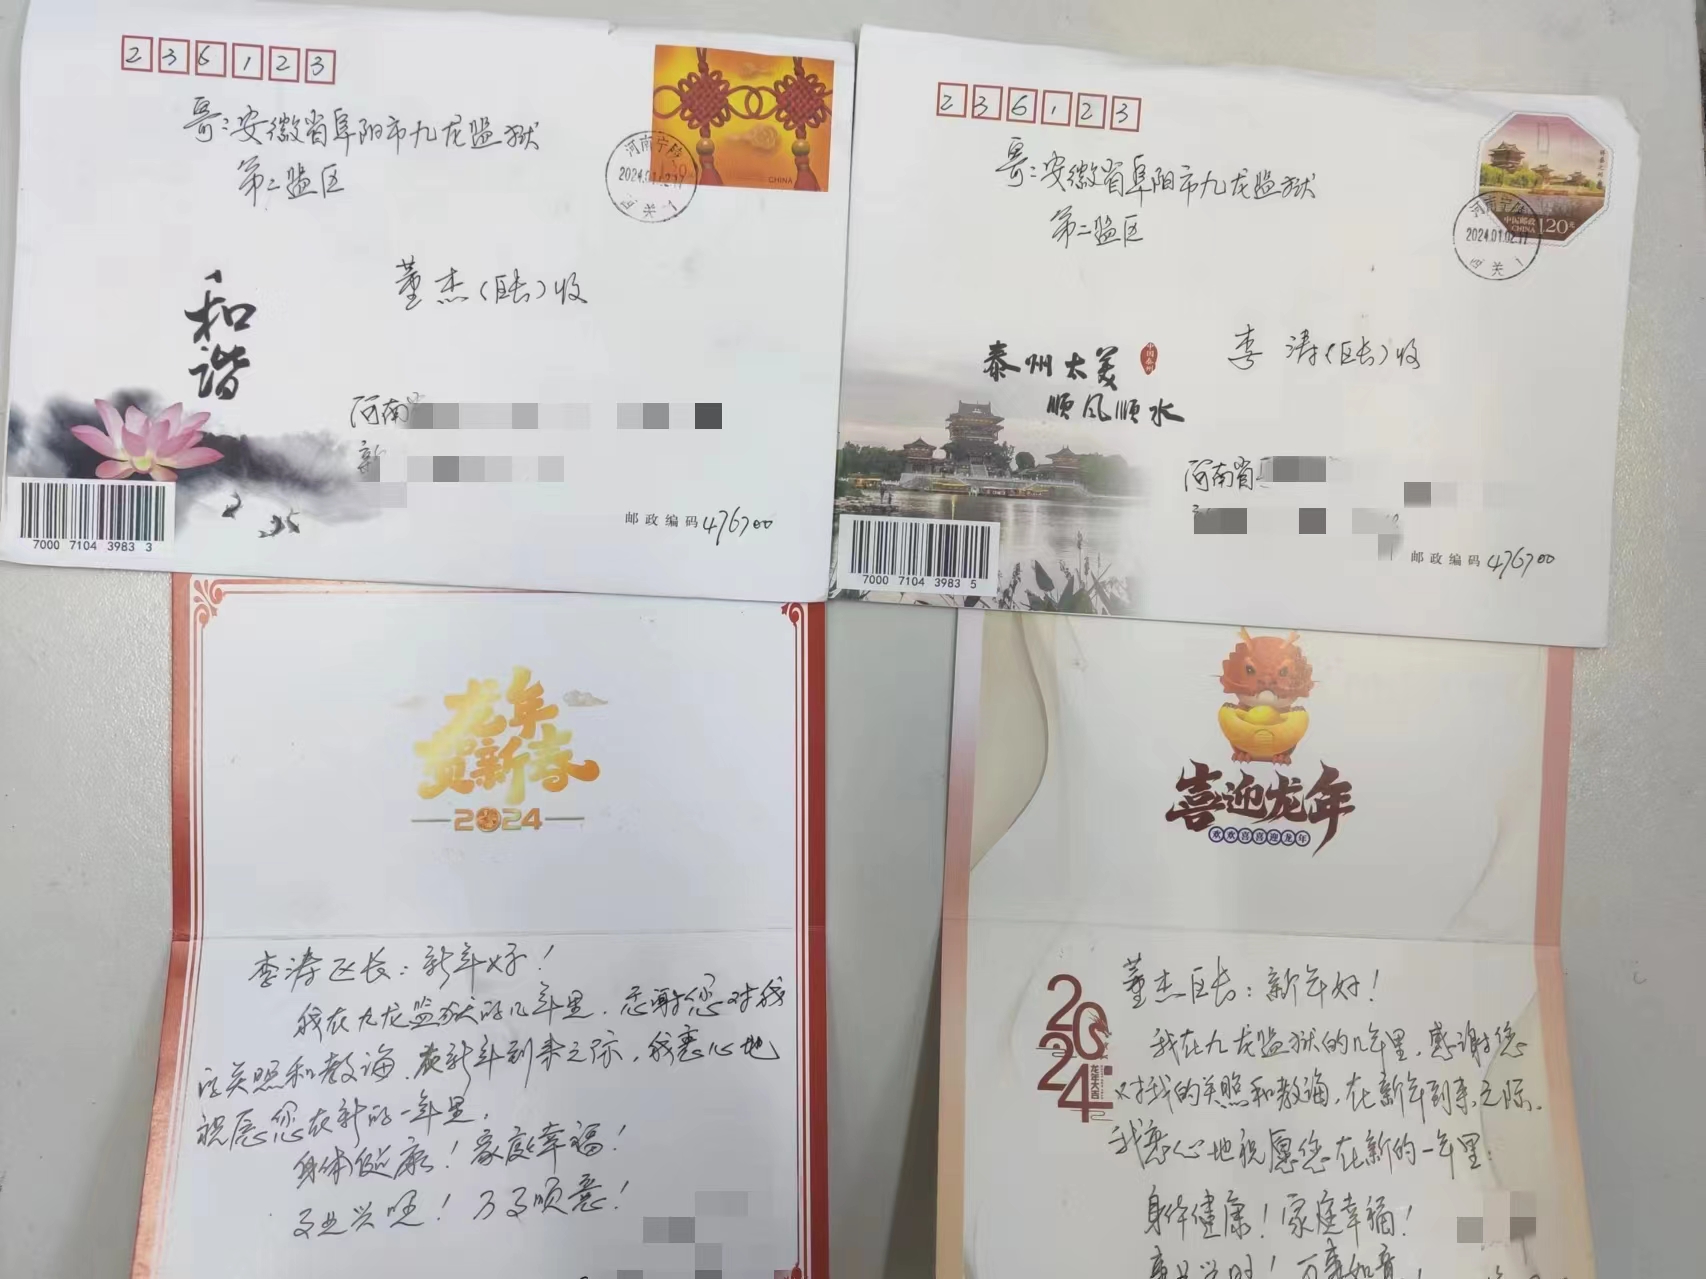 236123
寄:安徽省阜阳市九龙监狱
第二监区
董杰(区长)收
CHINA
河南宁陵
2024.01.02.17
西关1
和谐
河南
新
邮政编码 476700
7000 7104 3983 3
236123
寄:安徽省阜阳市九龙监狱
第二监区
李涛(区长)收
中国邮政
CHINA 1.20元
河南宁陵
2024.01.02.17
西关1
泰州太美
顺风顺水
河南省
邮政编码 476700
7000 7104 3983 5
龙年
贺新春
2024
李涛区长:新年好!
我在九龙监狱的几年里,感谢您对我
的关照和教诲,在新年到来之际,我衷心地
祝愿您在新的一年里,
身体健康!家庭幸福!
事业兴旺!万事顺意!
喜迎龙年
欢欢喜喜迎龙年
2024
龙年大吉
董杰区长:新年好!
我在九龙监狱的几年里,感谢您
对我的关照和教诲,在新年到来之际,
我衷心地祝愿您在新的一年里:
身体健康!家庭幸福!
事业兴旺!万事如意!